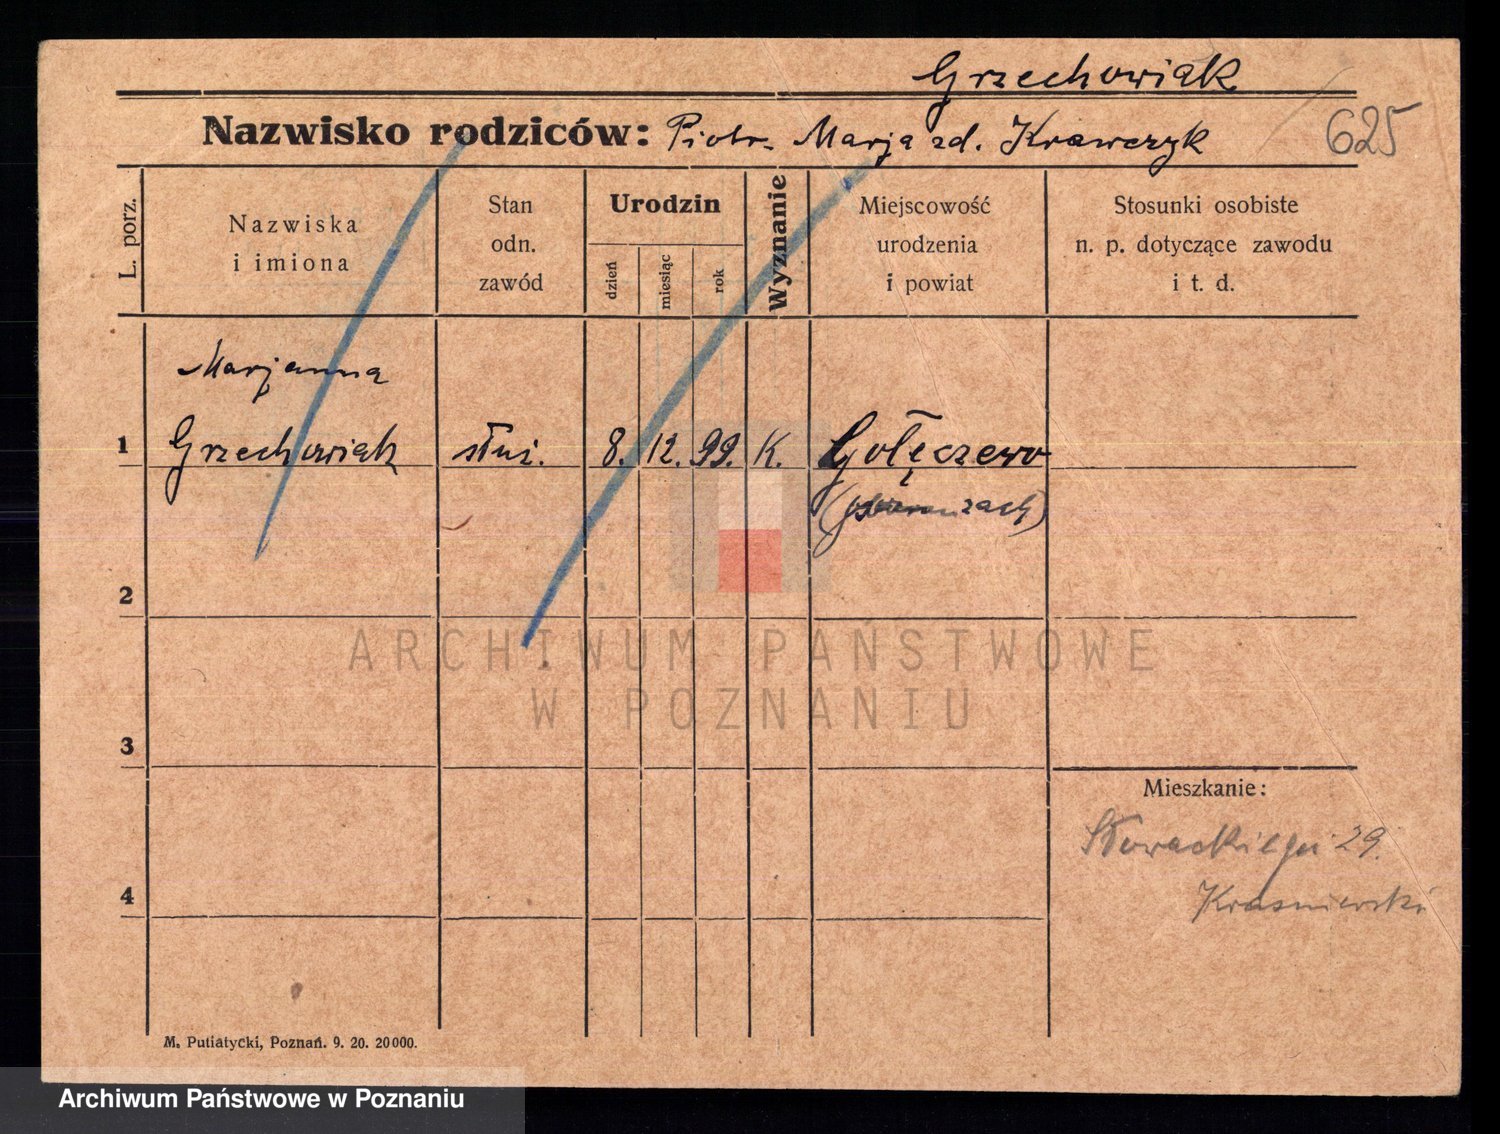 Grzechowiak
Nazwisko rodziców: Piotr. Marja zd. Krawczyk
625
L. porz.
Nazwiska
i imiona
Stan
odn.
zawód
Urodzin
dzień
miesiąc
rok
Wyznanie
Miejscowość
urodzenia
i powiat
Stosunki osobiste
n. p. dotyczące zawodu
i t. d.
Marjanna
1 Grzechowiak służ. 8. 12. 99. K. Gołęczewo
2
3
4
Mieszkanie:
Słowackiego 29.
Krasniewski
M. Putiatycki, Poznań. 9. 20. 20000.
ARCHIWUM PAŃSTWOWE
W POZNANIU
Archiwum Państwowe w Poznaniu